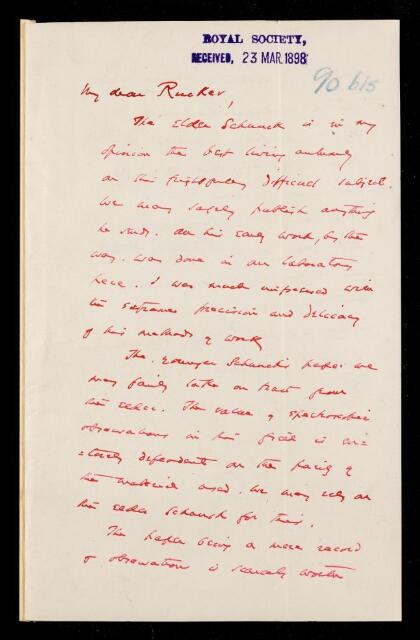 ROYAL SOCIETY,
RECEIVED, 23 MAR. 1898
90 bis
My dear Rucker,
The Elder Schunck is in my
opinion the best living authority
on this frightfully difficult subject.
We may safely publish anything
he sends. All his early work, by the
way, was done in our laboratory
here. I was much impressed with
the extreme precision and delicacy
of his methods of work
The younger Schunck's paper we
may fairly take on trust from
the elder. The value of spectroscopic
observations in this field is en=
=tirely dependent on the purity of
the material used. We may rely on
the elder Schunck for this.
The paper being a mere record
of observations is scarcely worth